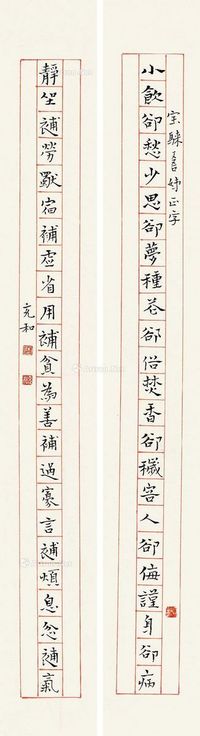 宗吾姊正字
小飲卻愁少思卻夢種花卻俗焚香卻穢容人卻侮謹身卻病
靜坐補勞獨宿補虛省用補貧為善補過寡言補煩息忿補氣
充和